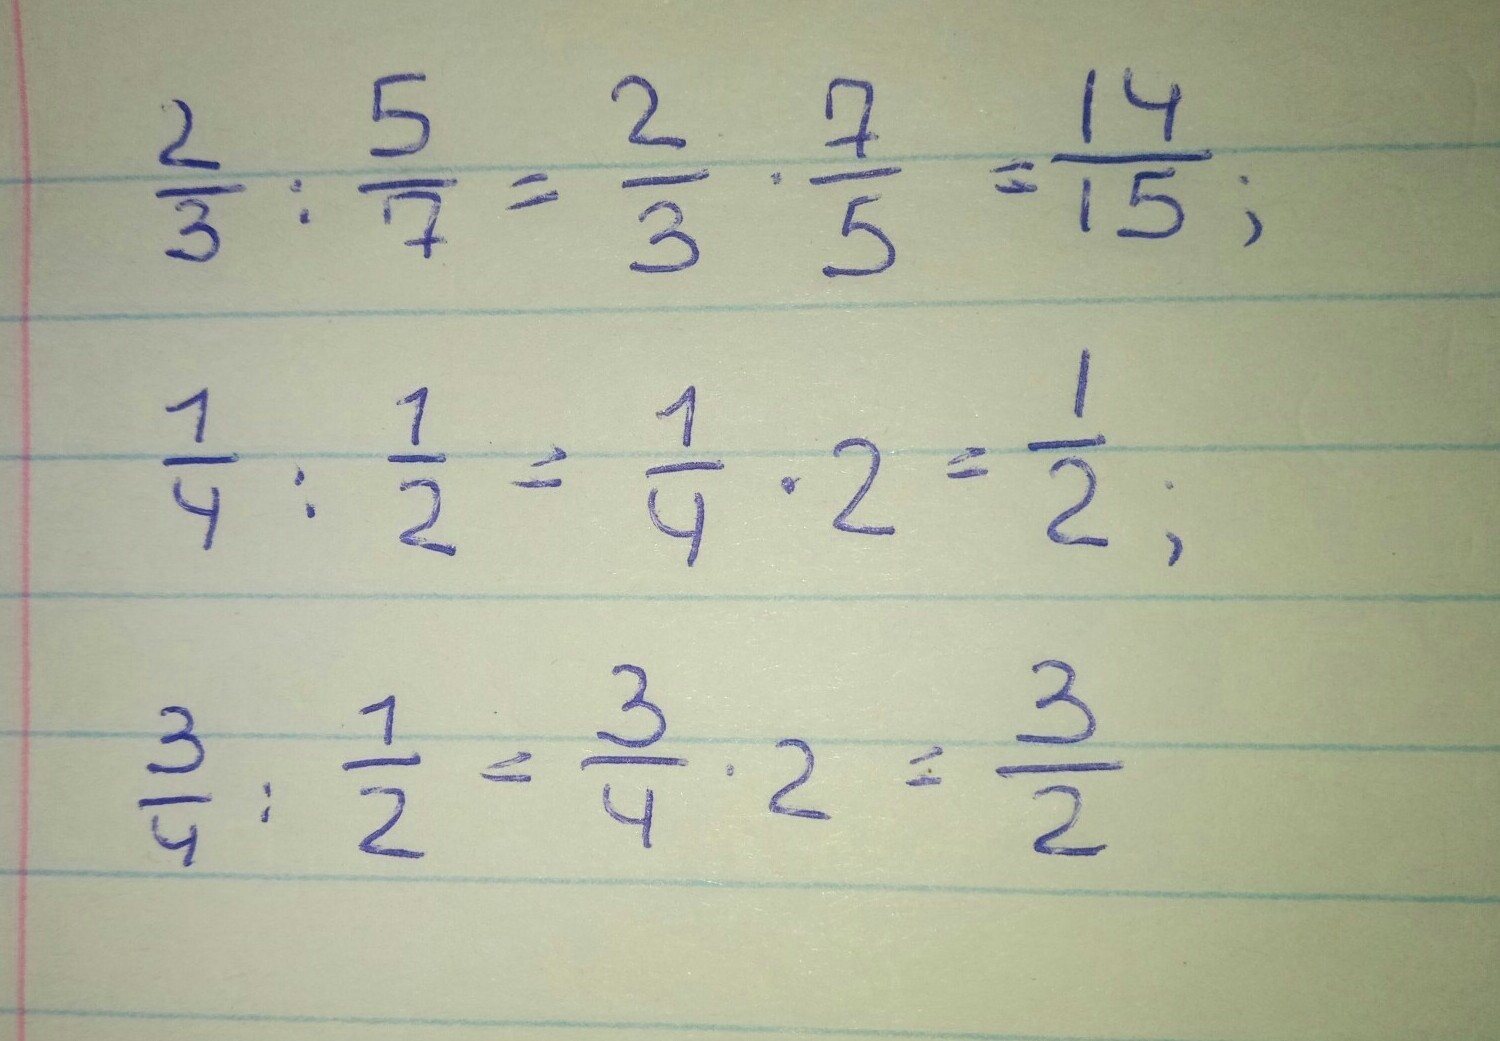 2/3 : 5/7 = 2/3 · 7/5 = 14/15;
1/4 : 1/2 = 1/4 · 2 = 1/2;
3/4 : 1/2 = 3/4 · 2 = 3/2